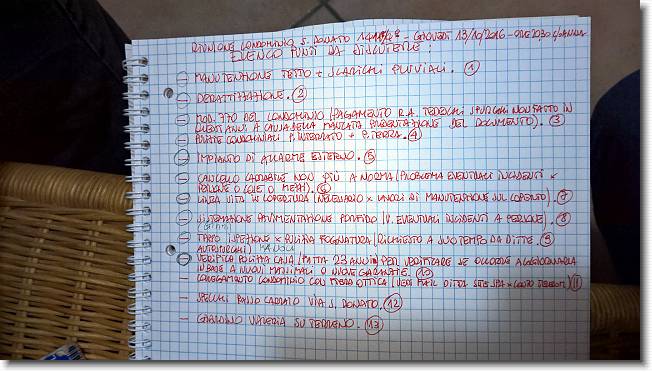 RIUNIONE CONDOMINIO S. DONATO - GIOVEDÌ 13/10/2016 - ORE 20,30 C/O
ELENCO PUNTI DA DISCUTERE:
- MANUTENZIONE TETTO + SCARICHI PLUVIALI. 1
- DERATTIZZAZIONE. 2
- MOD. 770 DEL CONDOMINIO (PAGAMENTO R.A. TEDESCHI SPURGHI NON FATTO IN
QUESTI ANNI A CAUSA DELLA MANCATA PRESENTAZIONE DEL DOCUMENTO). 3
- PULIZIE CONDOMINIALI P. INTERRATO + P. TERRA. 4
- IMPIANTO DI ALLARME ESTERNO. 5
- CANCELLO CARRABILE NON PIÙ A NORMA (PROBLEMA EVENTUALI INCIDENTI X
PERSONE O COSE O MEZZI). 6
- LINEA VITA IN COPERTURA (NECESSARIO X LAVORI DI MANUTENZIONE SUL COPERTO). 7
- SISTEMAZIONE PAVIMENTAZIONE PORFIDO (V. EVENTUALI INCIDENTI A PERSONE) 8
- TAPPO ISPEZIONE X PULIZIA FOGNATURA (RICHIESTO A SUO TEMPO DA DITTE. 9
AUTOSPURGHI)
- VERIFICA POLIZZA CASA (FATTA 23 ANNI) PER VERIFICARE SE OCCORRE AGGIORNARLA
IN BASE A NUOVI MASSIMALI O NUOVE GARANZIE. 10
- COLLEGAMENTO CONDOMINIO CON FIBRA OTTICA (VEDI MAIL DITTA SITE SPA X CONTO TELECOM) 11
- SPECCHI PASSO CARRAIO VIA S. DONATO. 12
- GABBIONO VALERIA SU TERRENO. 13